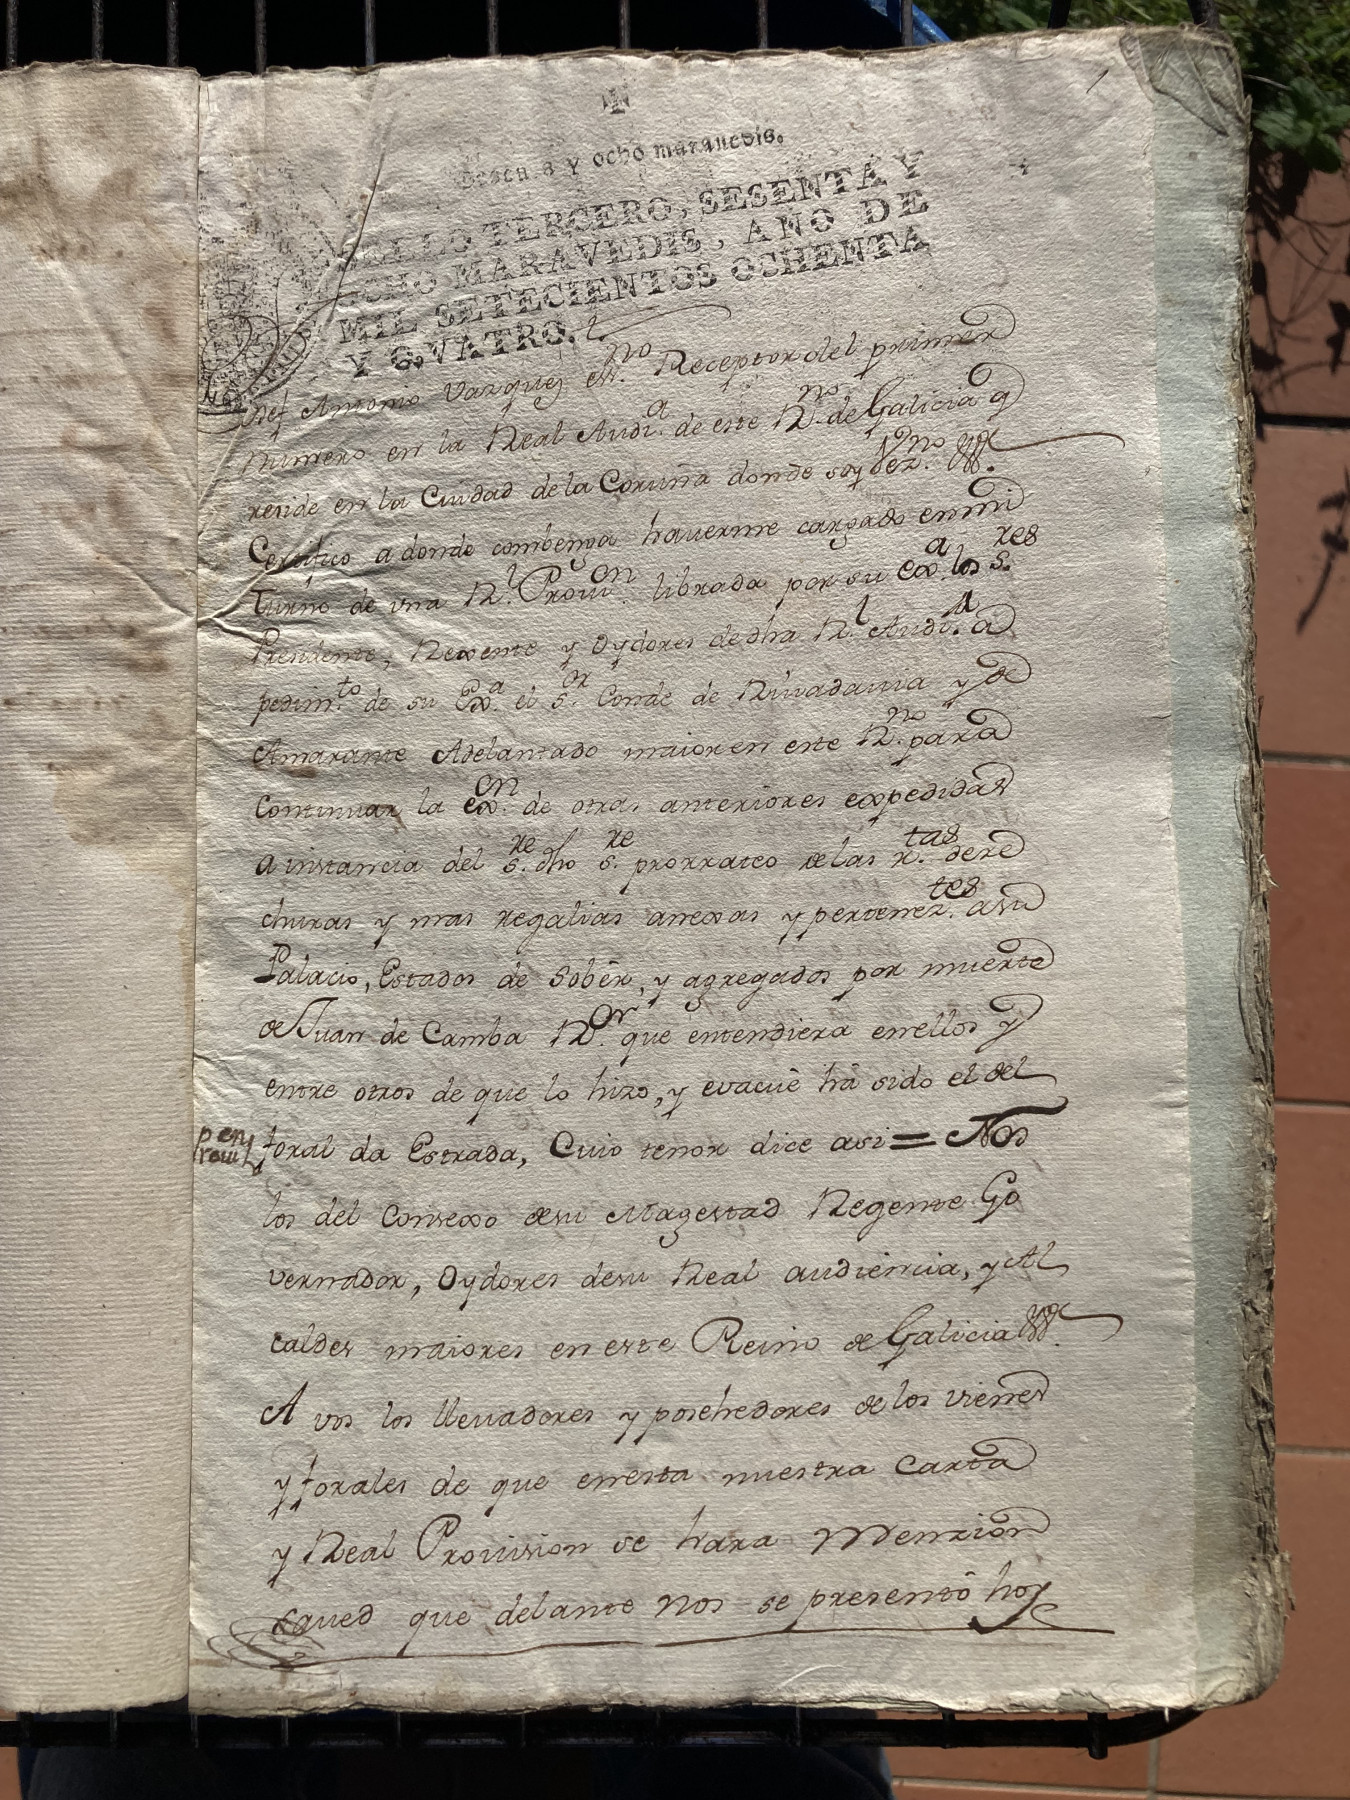 1
Sesenta y ocho marauedis.
SELLO TERCERO, SESENTA Y
OCHO MARAVEDIS, AÑO DE
MIL SETECIENTOS OCHENTA
Y QVATRO.
Antonio Vazquez essno. Receptor del primer
numero en la Real Audia. de este Rno. de Galicia q
reside en la Ciudad de la Coruña donde soy Vezno.
Certifico a donde combenga haverme cargado en mi
turno de vna Rl. Prouon. librada por su exa. los Sres
Presidente, Rexente y Oydores de dha Rl. Audia. a
pedimto. de su Exa. el sor. Conde de Riuadauia y de
Amarante Adelantado maior en este Rno. para
continuar la exon. de otras anteriores expedidas
a instancia del sre. dho sre. prorrateo de las rtas. dere
churas y mas regalias anexas y perteneztes. a su
Palacio, Estados de Sobèr, y agregados por muerte
de Juan de Camba Ror. que entendiera en ellos y
entre otros de que lo hizo, y evacuè hà sido el del
foral da Estrada, Cuio tenor dice asi = Nos
los del Consexo de su Magestad Regente Go
vernador, Oydores de su Real audiencia, y Al
caldes maiores en este Reino de Galicia
A vos los lleuadores y posehedores de los vienes
y forales de que en esta nuestra Carta
y Real Prouision se hara Menzion
saued que delante Nos se presentò hoy